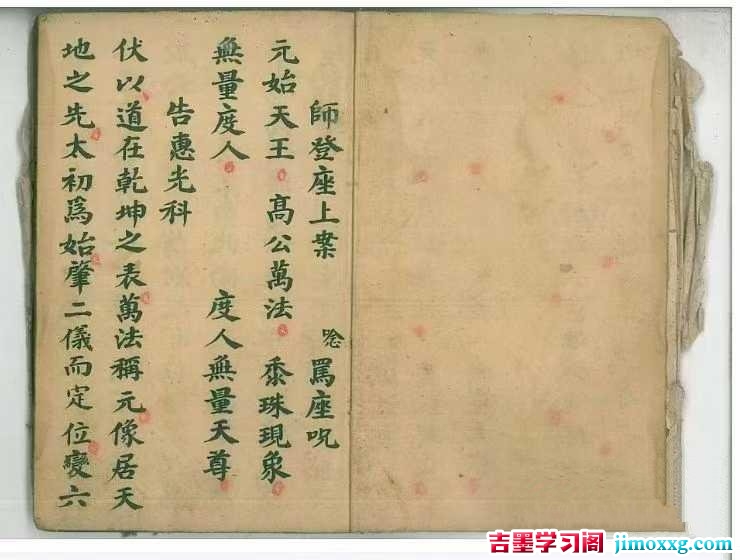 師登座上案 唸 罵座呪
元始天王 高公萬法 黍珠現象
無量度人 度人無量天尊
告惠光科
伏以道在乾坤之表萬法稱元像居天
地之先太初爲始肇二儀而定位變六
吉墨学习阁 jimoxxg.com